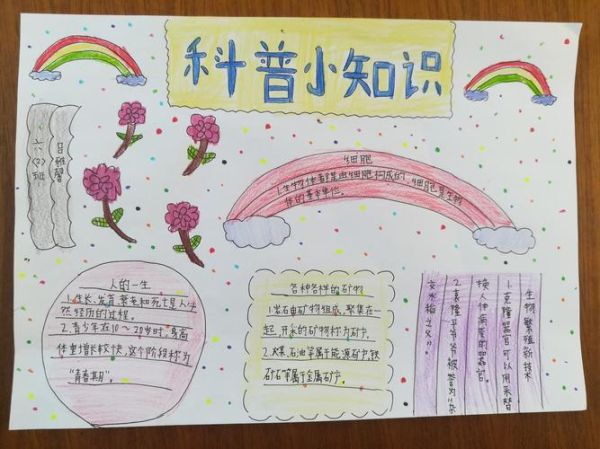 科普小知识
六(2)班
细胞
1.生物体都是由细胞构成的,细胞是生物
体的基本单位。
人的一生
1.生长、发育、衰老和死亡是人生
必然经历的过程。
2.青少年在10～20岁时,身高
体重增长较快,这个阶段称为
“青春期”。
各种各样的矿物
1.岩石由矿物组成,聚集在一
起,开采的矿物称为矿产。
2.煤、石油等属于能源矿产,铁
矿石等属于金属矿产。
生物繁殖新技术
1.克隆器官可以用来替
换人体病变的器官。
2.袁隆平爷爷被誉为“杂
交水稻之父”。